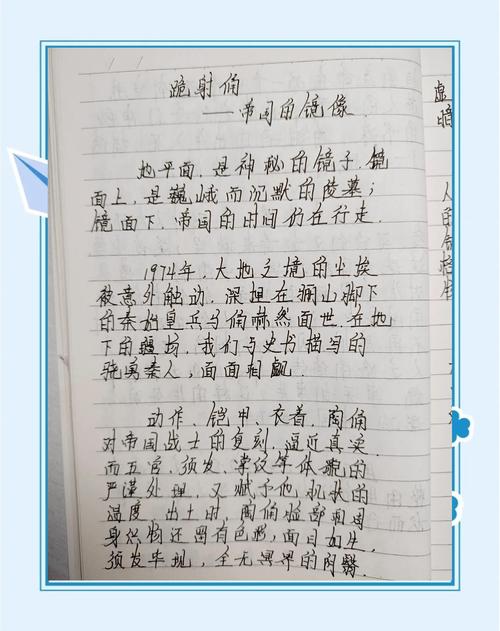 跪射俑
——帝国的镜像.
地平面,是神秘的镜子.镜
面上,是巍峨而沉默的陵墓;
镜面下,帝国的时间仍在行走.
1974年,大地之境的尘埃
被意外触动,深埋在骊山脚下
的秦始皇兵马俑赫然面世.在地
下的疆场,我们与史书描写的
骁勇秦人,面面相觑.
动作、铠甲、衣着,陶俑
对帝国战士的复刻,逼近真实
而五官、须发、掌纹等体貌的
严谨处理,又赋予他肌肤的
温度.出土时,陶俑脸部
身织物还留有色彩,面目如生,
须发毕现,全无冥界的阴翳.
虚
暗
人